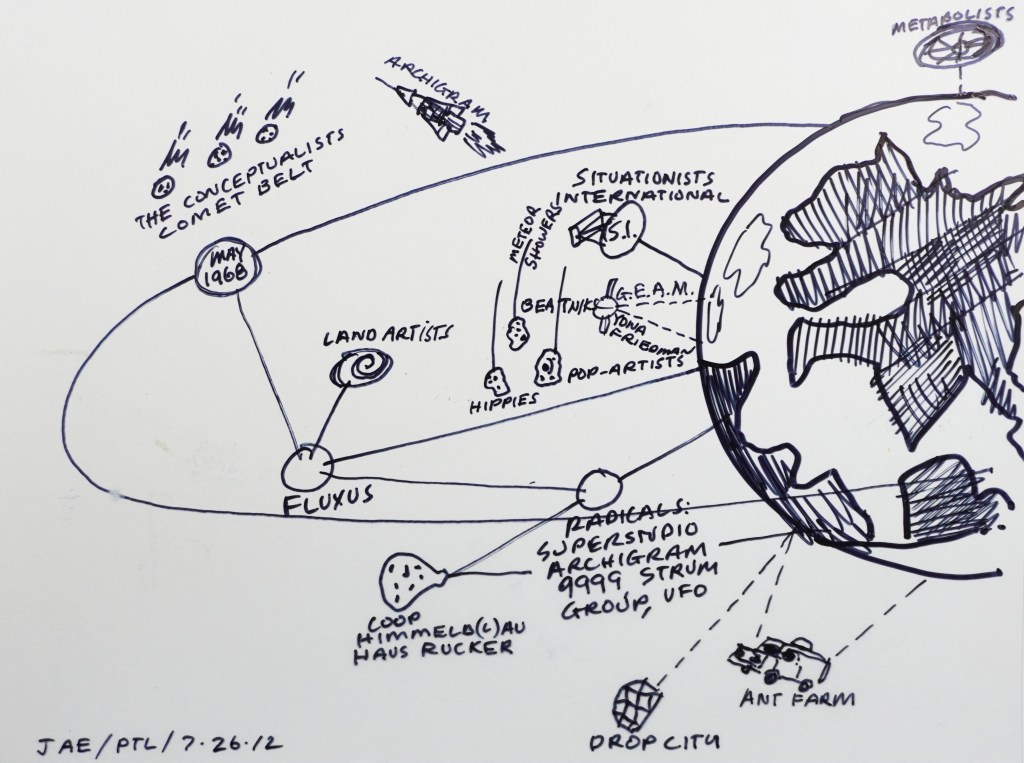 METABOLISTS
ARCHIGRAM
THE CONCEPTUALISTS
COMET BELT
SITUATIONISTS
INTERNATIONAL
S.I.
METEOR
SHOWERS
MAY
1968
BEATNIKS
G.E.A.M.
YONA
FRIEDMAN
LAND ARTISTS
POP-ARTISTS
HIPPIES
FLUXUS
RADICALS:
SUPERSTUDIO
ARCHIGRAM
9999 STRUM
GROUP, UFO
COOP
HIMMELB(L)AU
HAUS RUCKER
ANT FARM
DROP CITY
JAE/PTL/7.26.12